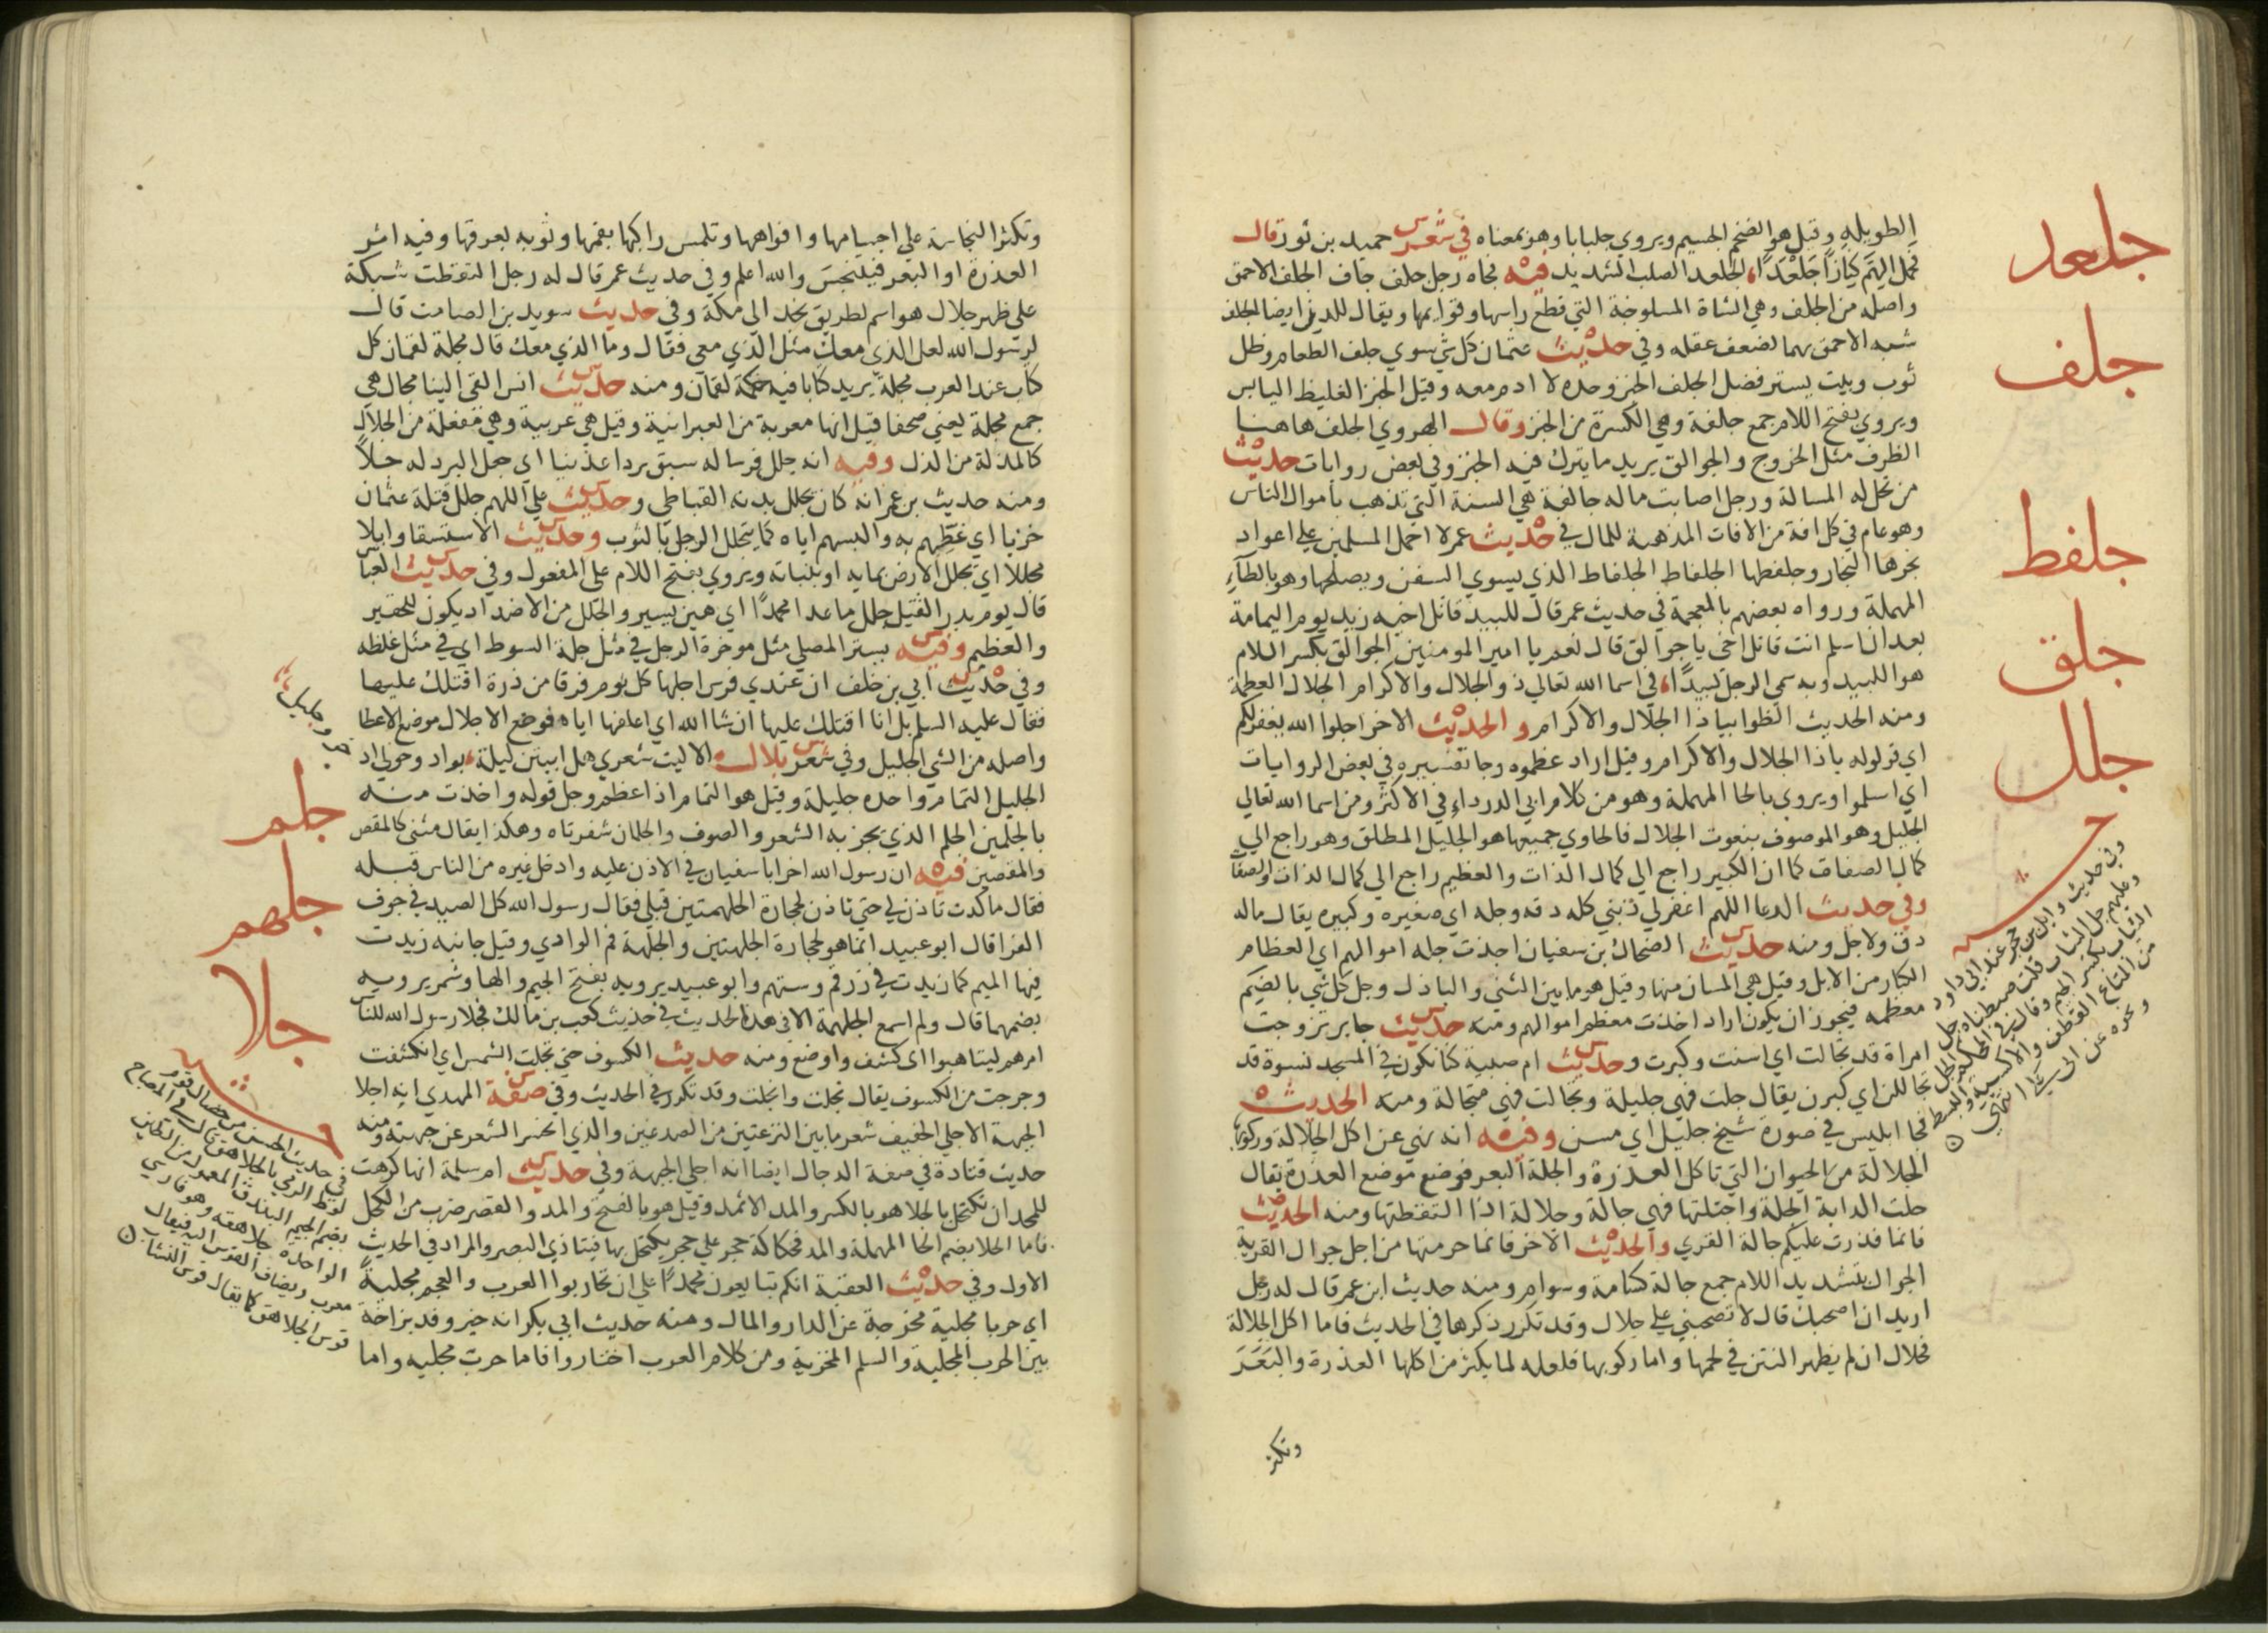 جلعد
جلف
جلفط
جلق
جلل
الطويله وقيل هو الضخم الجسيم ويروي جلبابا وهو بمعناه في شعر حميد بن ثور قال
فحمل الهم كبازا جلعدا الجلعد الصلب الشديد فيه فجاه رجل جلف جاف الجلف الاحمق
واصله من الجلف وهي الشاة المسلوخة التي قطع راسها وقوايمها ويقال للدن ايضا الجلف
شبه الاحمق بهما لضعف عقله وفي حديث عثمان كل شي سوي جلف الطعام وظل
ثوب وبيت يستر فضل الجلف الخبز وحده لا ادم معه وقيل الخبز الغليظ اليابس
ويروي بفتح اللام جمع جلفة وهي الكسرة من الخبز وقال الهروي الجلف هاهنا
الظرف مثل الخرج والجوالق يريد ما يترك فيه الخبز وفي بعض روايات حديث
من تحل له المسالة ورجل اصابت ماله جالفة هي السنة التي تذهب باموال الناس
وهو عام في كل افة من الافات المذهبة للمال في حديث عمر لا احمل المسلمين علي اعواد
نجرها النجار وجلفطها الجلفاط الجلفاط الذي يسوي السفن ويصلحها وهو بالطاء
المهملة ورواه بعضهم بالمعجمة في حديث عمر قال للبيد قاتل اخيه زيد يوم اليمامة
بعد ان اسلم انت قاتل اخي يا جوالق قال نعم يا امير المومنين الجوالق بكسر اللام
هو اللبيد وبه سمي الرجل لبيدا في اسما الله تعالي ذو الجلال والاكرام الجلال العظمة
ومنه الحديث الظوا بيا ذا الجلال والاكرام والحديث الاخر اجلوا الله يغفر لكم
اي قولوا له يا ذا الجلال والاكرام وقيل اراد عظموه وجا تفسيره في بعض الروايات
اي اسلموا ويروي بالحا المهملة وهو من كلام ابي الدرداء في الاكثر ومن اسما الله تعالي
الجليل وهو الموصوف بنعوت الجلال فالحاوي جميعها هو الجليل المطلق وهو راجع الي
كمال الصفات كما ان الكبير راجع الي كمال الذات والعظيم راجع الي كمال الذات والصفات
وفي حديث الدعا اللهم اغفر لي ذنبي كله دقه وجله اي صغيره وكبيره يقال ماله
دق ولا جل ومنه حديث الضحاك بن سفيان اخذت جلة اموالهم اي العظام
الكبار من الابل وقيل هي المسان منها وقيل هو ما بين الثني والبازل وجل كل شي بالضم
معظمه فيجوز ان يكون اراد اخذت معظم اموالهم ومنه حديث جابر تزوجت
امراة قد تجالت اي اسنت وكبرت وحديث ام صبية كنا نكون في المسجد نسوة قد
تجاللن اي كبرن يقال جلت فهي جليلة وتجالت فهي متجالة ومنه الحديث
فجا ابليس في صورة شيخ جليل اي مسن وفيه انه نهي عن اكل الجلالة وركوبها
الجلالة من الحيوان التي تاكل العذرة والجلة البعر فوضع موضع العذرة يقال
جلت الدابة الجلة واجتلتها فهي جالة وجلالة اذا التقطتها ومنه الحديث
فانما قذرت عليكم جالة القري والحديث الاخر فانما حرمتها من اجل جوال القرية
الجوال بتشديد اللام جمع جالة كسامة وسوام ومنه حديث ابن عمر قال له رجل
اريد ان اصحبك قال لا تصحبني علي جلال وقد تكرر ذكرها في الحديث فاما اكل الجلالة
فحلال ان لم يظهر النتن في لحمها واما ركوبها فلعله لما يكثر من اكلها العذرة والبعر
وتكثر
وفي حديث وايل بن حجر عند ابي داود
وعليهم جل الثياب
جلم
جلهم
جلا
وتكثر النجاسة علي اجسامها وافواهها وتلمس راكبها بفمها وثوبه بعرقها وفيه اثر
العذرة او البعر فيتنجس والله اعلم وفي حديث عمر قال له رجل التقطت شبكة
علي ظهر جلال هو اسم لطريق نجد الي مكة وفي حديث سويد بن الصامت قال
لرسول الله لعل الذي معك مثل الذي معي فقال وما الذي معك قال مجلة لقمان كل
كتاب عند العرب مجلة يريد كتابا فيه حكمة لقمان ومنه حديث انس القي الينا مجال هي
جمع مجلة يعني صحفا قيل انها معربة من العبرانية وقيل هي عربية وهي مفعلة من الجلال
كالمذلة من الذل وفيه انه جلل فرسا له سبق بردا عدنيا اي جعل البرد له جلا
ومنه حديث بن عمر انه كان يجلل بدنه القباطي وحديث علي اللهم جلل قتلة عثمان
خزيا اي غطهم به والبسهم اياه كما يتجلل الرجل بالثوب وحديث الاستسقا وابلا
مجللا اي يجلل الارض بمايه او بنباته ويروي بفتح اللام علي المفعول وفي حديث العباس
قال يوم بدر القتيل جلل ما عدا محمدا اي هين يسير والجلل من الاضداد يكون للحقير
والعظيم وفيه يستر المصلي مثل موخرة الرحل في مثل جلة السوط اي في مثل غلظه
وفي حديث ابي بن خلف ان عندي فرس اجلها كل يوم فرقا من ذرة اقتلك عليها
فقال عليه السلم بل انا اقتلك عليها ان شا الله اي اعلفها اياه فوضع الاجلال موضع الاعطا
واصله من الشي الجليل وفي شعر بلال الا ليت شعري هل ابيتن ليلة بواد وحولي اذ
الجليل الثمام واحده جليلة وقيل هو الثمام اذا عظم وجل قوله واخذت منه
بالجلمين الجلم الذي يجز به الشعر والصوف والجلمان شفرتاه وهكذا يقال مثنى كالمقص
والمقصين فيه ان رسول الله اخر ابا سفيان في الاذن عليه وادخل غيره من الناس قبله
فقال ما كدت تاذن لي حتي تاذن لحجارة الجلهمتين قبلي فقال رسول الله كل الصيد في جوف
الفرا قال ابو عبيد انما هو لحجارة الجلهتين والجلهة فم الوادي وقيل جانبه زيدت
فيها الميم كما زيدت في زرقم وستهم وابو عبيد يرويه بفتح الجيم والها وشمر يرويه
بضمهما قال ولم اسمع الجلهمة الا في هذا الحديث في حديث كعب بن مالك فجلا رسول الله للناس
امرهم ليتاهبوا اي كشف واوضح ومنه حديث الكسوف حتي تجلت الشمس اي انكشفت
وخرجت من الكسوف يقال تجلت وانجلت وقد تكرر في الحديث وفي صفة المهدي انه اجلا
الجبهة الاجلي الخفيف شعر ما بين النزعتين من الصدغين والذي انحسر الشعر عن جبهته ومنه
حديث قتادة في صفة الدجال ايضا انه اجلي الجبهة وفي حديث ام سلمة انها كرهت
للمحد ان تكتحل بالجلا هو بالكسر والمد الاثمد وقيل هو بالفتح والمد والقصر ضرب من الكحل
فاما الحلا بضم الحا المهملة والمد فحكاكة حجر علي حجر يكتحل بها فيتاذي البصر والمراد في الحديث
الاول وفي حديث العقبة انكم تبايعون محمدا علي ان تحاربوا العرب والعجم مجلية
اي حربا مجلية مخرجة عن الدار والمال ومنه حديث ابي بكر انه خير وفد بزاخة
بين الحرب المجلية والسلم المخزية ومن كلام العرب اختاروا فاما حرب مجليه واما
في حديث الحسن من خصال قوم
لوط الرمي بالجلاهق قال في المصباح
بضم الجيم البندق المعمول من الطين
الواحدة جلاهقة وهو فارسي
معرب ويضاف القوس اليه فيقال
قوس الجلاهق كما يقال قوس النشاب